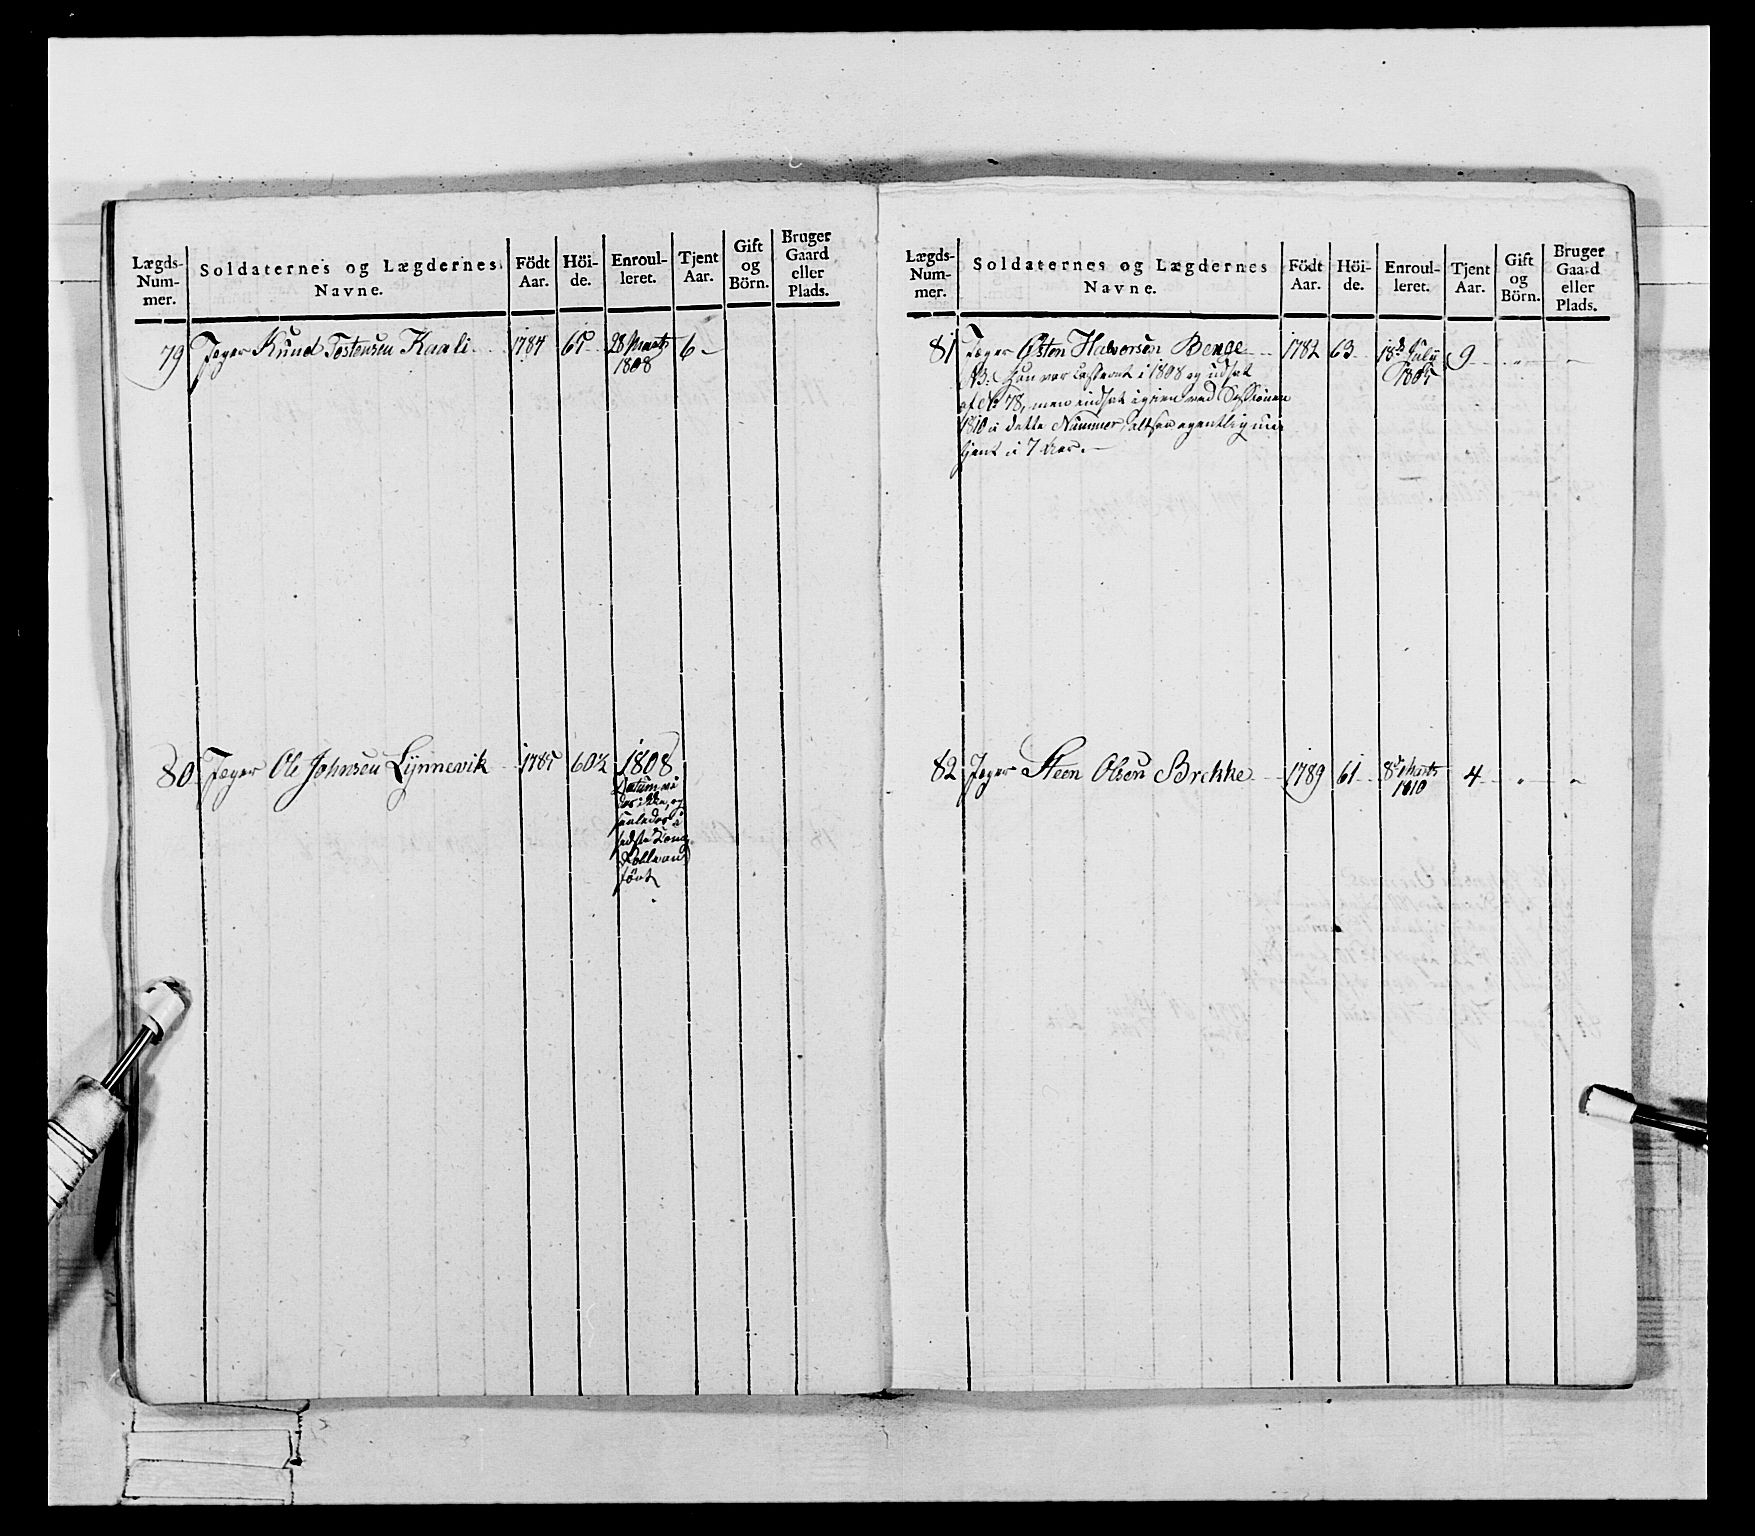 Lægds-
Num-
mer.
Soldaternes og Lægdernes
Navne.
Födt
Aar.
Höi-
de.
Enroul-
leret.
Tjent
Aar.
Gift
og
Börn.
Bruger
Gaard
eller
Plads.
79 Jæger Knud Tostensen Kaali 1784 65 28 Marts 6
1808
80 Jæger Ole Johnsen Lynnevik 1785 60½ 1808
Datum
ikke, og
i
sidste
Rolle
fört
Lægds-
Num-
mer.
Soldaternes og Lægdernes
Navne.
Födt
Aar.
Höi-
de.
Enroul-
leret.
Tjent
Aar.
Gift
og
Börn.
Bruger
Gaard
eller
Plads.
81 Jæger Østen Halvorsen Benge 1782 63 18d July 9 " "
1805
NB: han var i 1808 og udsat
af No 78, men indsat igien ved Sessionen
1810 i dette Nummer, altsaa egentlig
tjent i 7 Aar.
82 Jæger Steen Olsen Brekke 1789 61 8d Marts 4 " "
1810